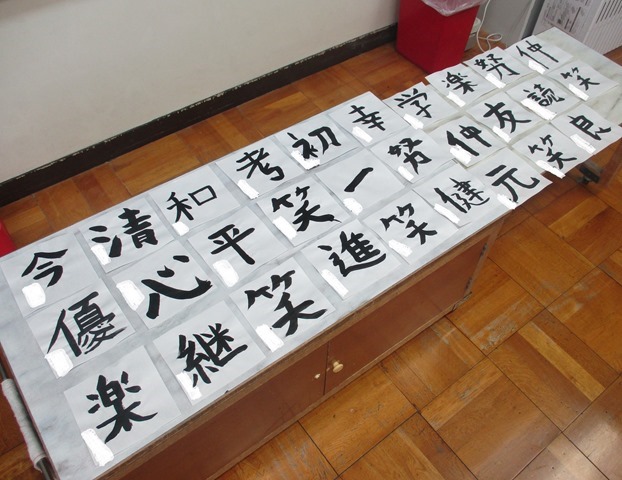 今清和考初幸学楽努仲
優心平笑一努仲友読笑
楽継笑進笑健元笑良